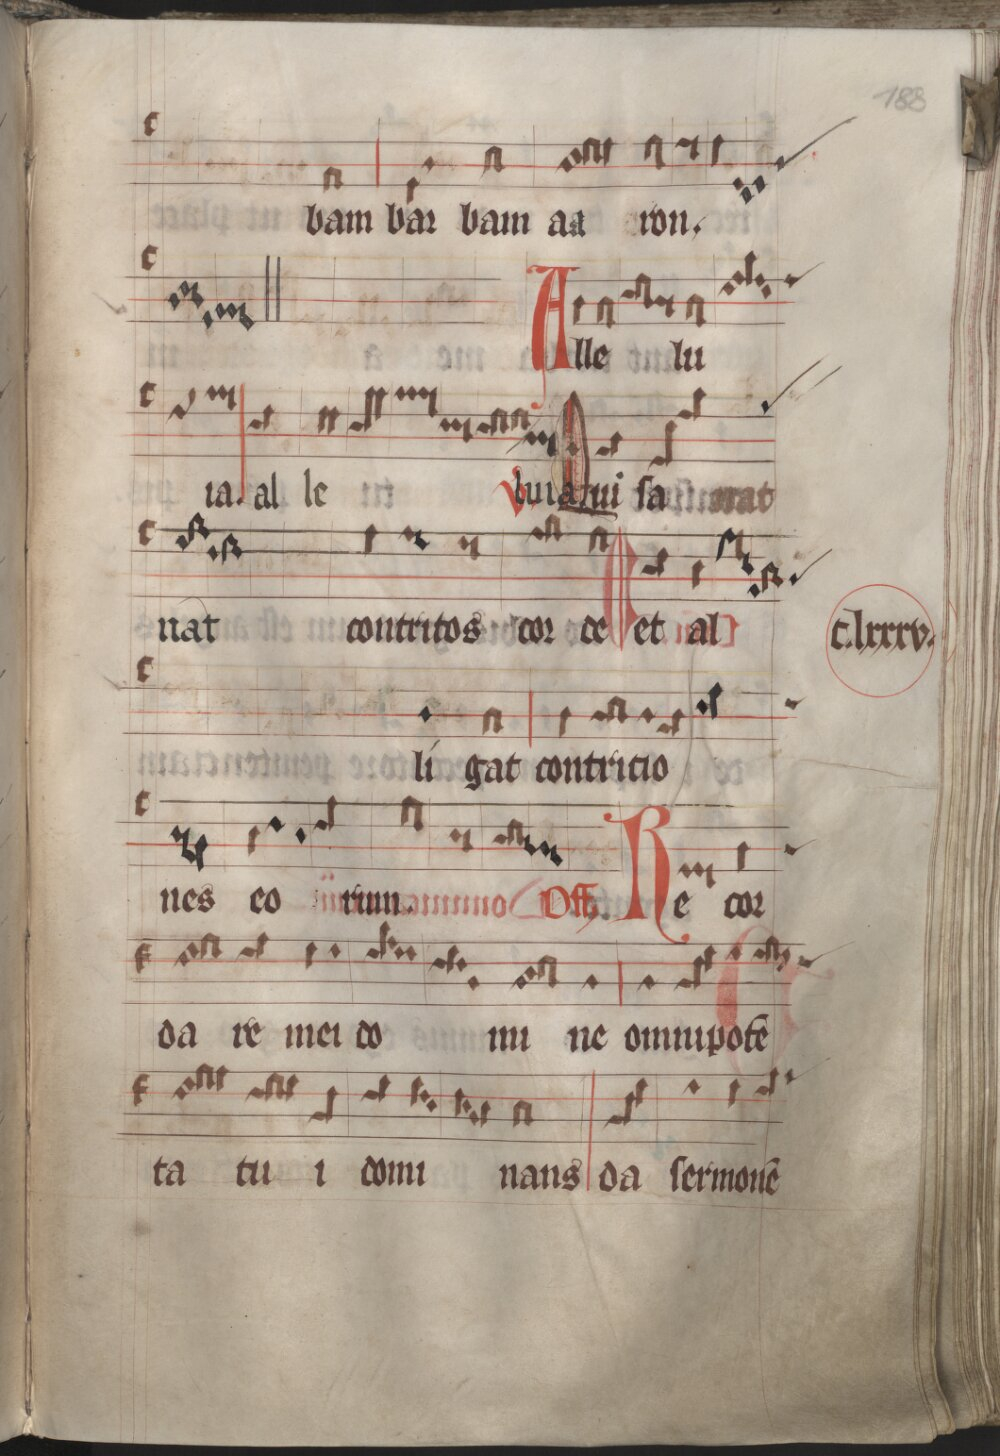 188
bam bar bam aa ron.
Alle lu
ia. al le luia. V Qui sa
nat contritos cor de et al
c.lxxxv.
li gat contricio
nes eo rum. Off. Re cor
da re mei do mi ne omnipotē
ta tu i domi nans da sermonē